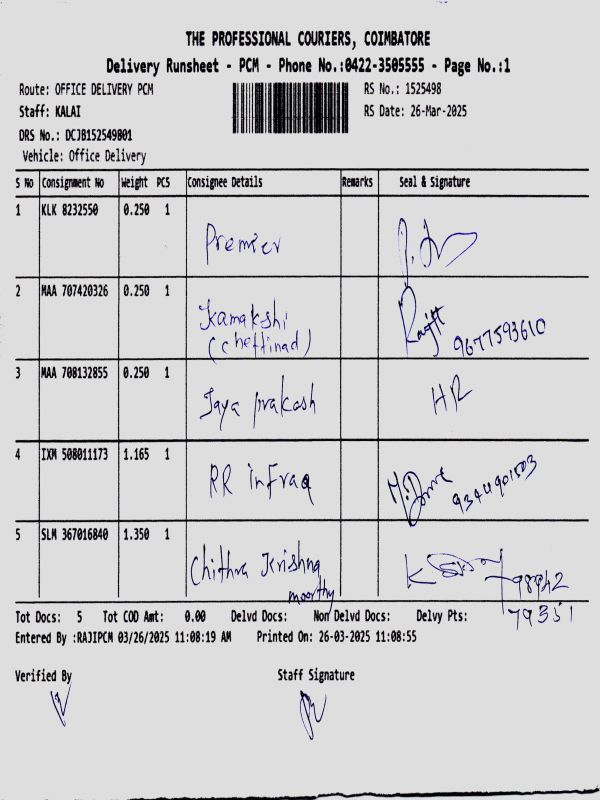 THE PROFESSIONAL COURIERS, COIMBATORE
Delivery Runsheet - PCM - Phone No.:0422-3505555 - Page No.:1
Route: OFFICE DELIVERY PCM
RS No.: 1525498
Staff: KALAI
RS Date: 26-Mar-2025
DRS No.: DCJB152549801
Vehicle: Office Delivery
S No Consignment No Weight PCS Consignee Details Remarks Seal & Signature
1 KLK 8232550 0.250 1
Premier
2 MAA 707420326 0.250 1
Kamakshi
(chettinad) 9677593610
3 MAA 708132855 0.250 1
Jaya prakash HR
4 IXM 508011173 1.165 1
RR infraq
5 SLM 367016840 1.350 1
Chithra Krishna
moorthy 98942
79351
Tot Docs: 5 Tot COD Amt: 0.00 Delvd Docs: Non Delvd Docs: Delvy Pts:
Entered By :RAJIPCM 03/26/2025 11:08:19 AM Printed On: 26-03-2025 11:08:55
Verified By Staff Signature